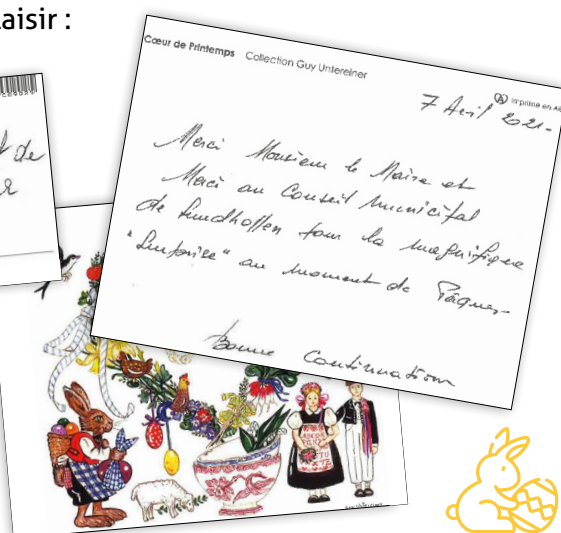 aisir :
Cœur de Printemps Collection Guy Untereiner
Imprimé en
7 Avril 2021.
Merci Monsieur le Maire et
Merci au Conseil Municipal
de Sundhoffen pour la magnifique
"Surprise" au moment de Pâques.
Bonne Continuation
de